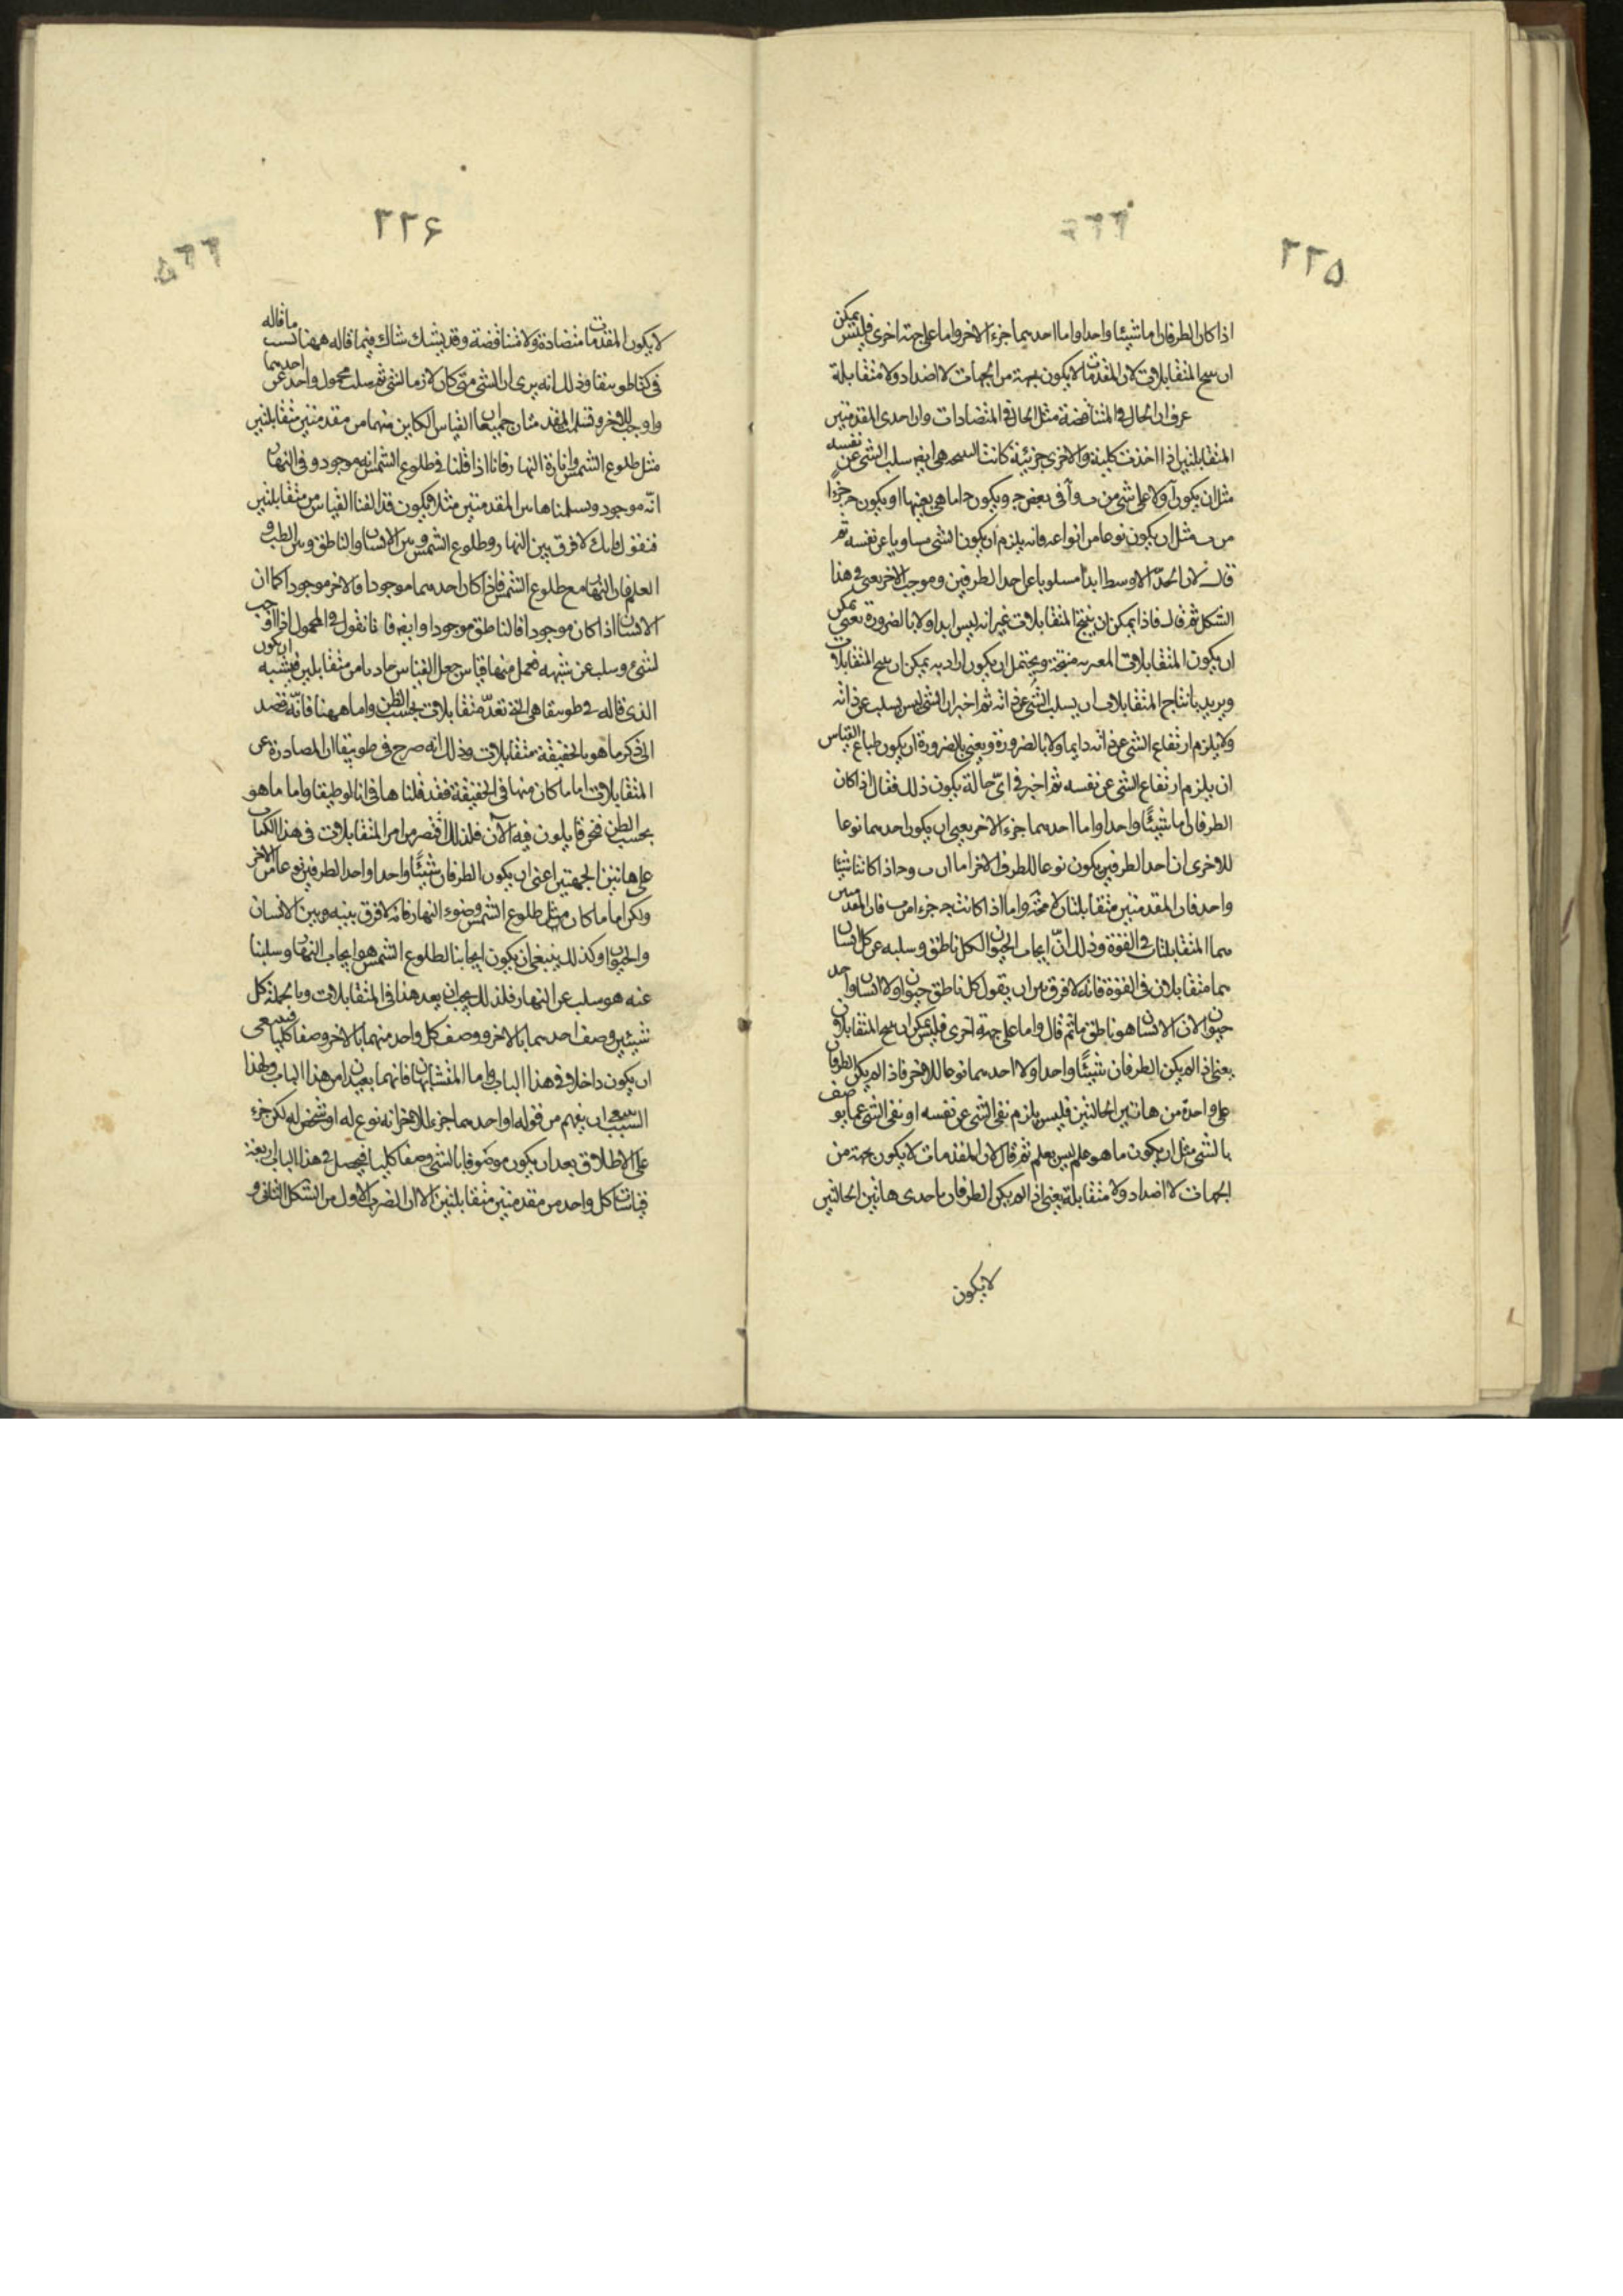 ٢٢۵
اذا كان الطرفان اما شيئا واحدا واما احدهما جزء الاخر واما على جهة اخرى فليس يمكن
ان ينتج المتقابلات لان المقدمات لا يكون بجهة من الجهات لا اضداد ولا متقابلة
عرف ان الحال فى المتناقضة مثل الحال فى المتضادات وان احدى المقدمتين
المتقابلتين اذا اخذت كلية والاخرى جزئية كانت النتيجة هى ايضا سلب الشئ عن نفسه
مثل ان يكون آ ولا على شئ من ب وآ فى بعض ج ويكون ج اما هى بعينها او يكون ج جزءا
من ب مثل ان يكون نوعا من انواعه فانه يلزم ان يكون الشئ مساويا عن نفسه ثم
قال لان الحد الاوسط ابدا مسلوبا عن احد الطرفين وموجب الاخر يعنى فى هذا
الشكل ثم قال فاذا يمكن ان ينتج المتقابلات غير انه ليس ابدا ولا بالضرورة يعنى يمكن
ان يكون المتقابلات منتجة ويحتمل ان يكون اراد به يمكن ان ينتج المتقابلات
ويريد بانتاج المتقابلات ان يسلب الشئ عن ذاته ثم اخبر ان الشئ ليس يسلب عن ذاته
ولا يلزم ارتفاع الشئ عن ذاته دايما ولا بالضرورة ويعنى بالضرورة ان يكون طباع القياس
ان يلزم ارتفاع الشئ عن نفسه ثم اخبر فى اى حالة يكون ذلك فقال اذا كان
الطرفان اما شيئا واحدا واما احدهما جزء الاخر يعنى ان يكون احدهما نوعا
للاخرى ان احد الطرفين يكون نوعا للطرف الاخر اما ان ب وج اذا كانتا شيئا
واحد فان المقدمتين متقابلتان لا محة واما اذا كانت ج جزء من ب فان المقدمتين
هما المتقابلتان فى القوة وذلك ان ايجاب الحيوان لكل ناطق وسلبه عن كل انسان
هما متقابلان فى القوة فانه لا فرق بين ان يقول كل ناطق حيوان ولا انسان واحد
حيوان لان الانسان هو ناطق ما ثم قال واما على جهة اخرى فليس يمكن ان ينتج المتقابلات
يعنى اذا لم يكن الطرفان شيئا واحدا ولا احدهما نوعا للاخر فاذا لم يكن الطرفان
على واحدة من هاتين الحالتين فليس يلزم نفى الشئ عن نفسه او نفى الشئ عما يوصف
بالشئ مثل ان يكون ما هو علم ليس بعلم ثم قال لان المقدمات لا يكون بجهة من
الجهات لا اضداد ولا متقابلة يعنى اذا لم يكن الطرفان باحدى هاتين الحالتين
لا يكون
٢٢۶
لا يكون المقدمات متضادة ولا متناقضة وقد يشك شاك فيما قاله ههنا بسبب ما قاله
فى كتاب طوبيقا وذلك انه يرى ان الشئ متى كان لازما لشئ ثم سلب محمول واحد عن احدهما
واوجب للاخر وتسلمت المقدمتان جميعا ان القياس الكاين منهما من مقدمتين متقابلتين
مثل طلوع الشمس وانارة النهار فانا اذا قلنا فى طلوع الشمس انه موجود وفى النهار
انه موجود وتسلمنا هاتين المقدمتين مثلا فيكون قد الفنا القياس من متقابلتين
فنقول فانك لا فرق بين النهار وطلوع الشمس وبين الانسان والناطق وبين الطب و
العلم فان النهار مع طلوع الشمس فاذا كان احدهما موجودا فالاخر موجود كما ان
الانسان اذا كان موجودا فالناطق موجودا وايضا فانا نقول فى المحمول اذا اوجب
لشئ وسلب عن شبهه فعمل منها قياس جعل القياس حادثا من متقابلين فيشبه ان يكون
الذى قاله فى طوبيقا هى التى تعد متقابلات بحسب الظن واما ههنا فانه قصد
الى ذكر ما هو بالحقيقة متقابلات وذلك انه صرح فى طوبيقا ان المصادرة عن
المتقابلات اما ما كان منها فى الحقيقة فقد قلناها فى انالوطيقا واما ما هو
بحسب الظن فنحن قايلون فيه الآن فلذلك اقتصر من امر المتقابلات فى هذا الكتاب
على هاتين الجهتين اعنى ان يكون الطرفان شيئا واحدا واحد الطرفين نوعا من الاخر
ولكن اما ما كان مثل طلوع الشمس وضوء النهار فانه لا فرق بينه وبين الانسان
والحيوان وكذلك ينبغى ان يكون ايجابنا لطلوع الشمس هو ايجاب النهار وسلبنا
عنه هو سلب عن النهار فلذلك يجب ان يعد هذا فى المتقابلات وبالجملة كل
شيئين وصف احدهما بالاخر ووصف كل واحد منهما بالاخر وصفا كليا فينبغى
ان يكون داخلا فى هذا الباب واما المتشابهان فانهما بعيدان من هذا الباب ولهذا
السبب ينبغى ان يفهم من قوله او احدهما جزء للاخر انه نوع له او شخص له لكن جزء
على الاطلاق بعد ان يكون موصوفا بالشئ وصفا كليا فيحصل فى هذا الباب اربعة
قياسات كل واحد من مقدمتين متقابلتين الا ان الضرب الاول من الشكل الثانى و